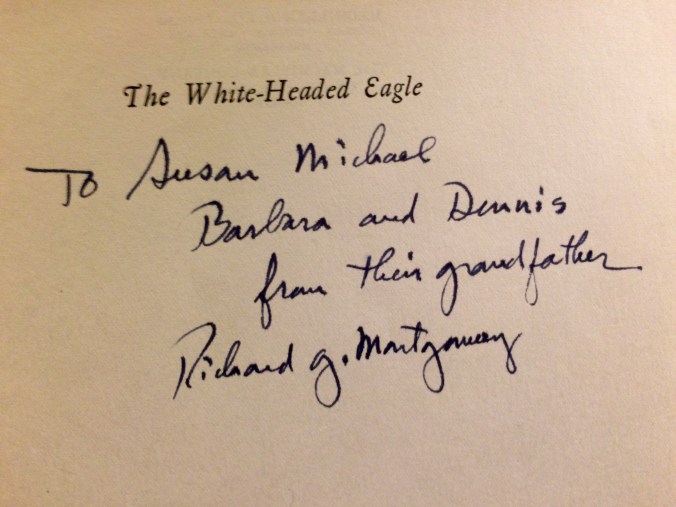 The White-Headed Eagle
To Susan Michael
Barbara and Dennis
from their grandfather
Richard G. Montgomery